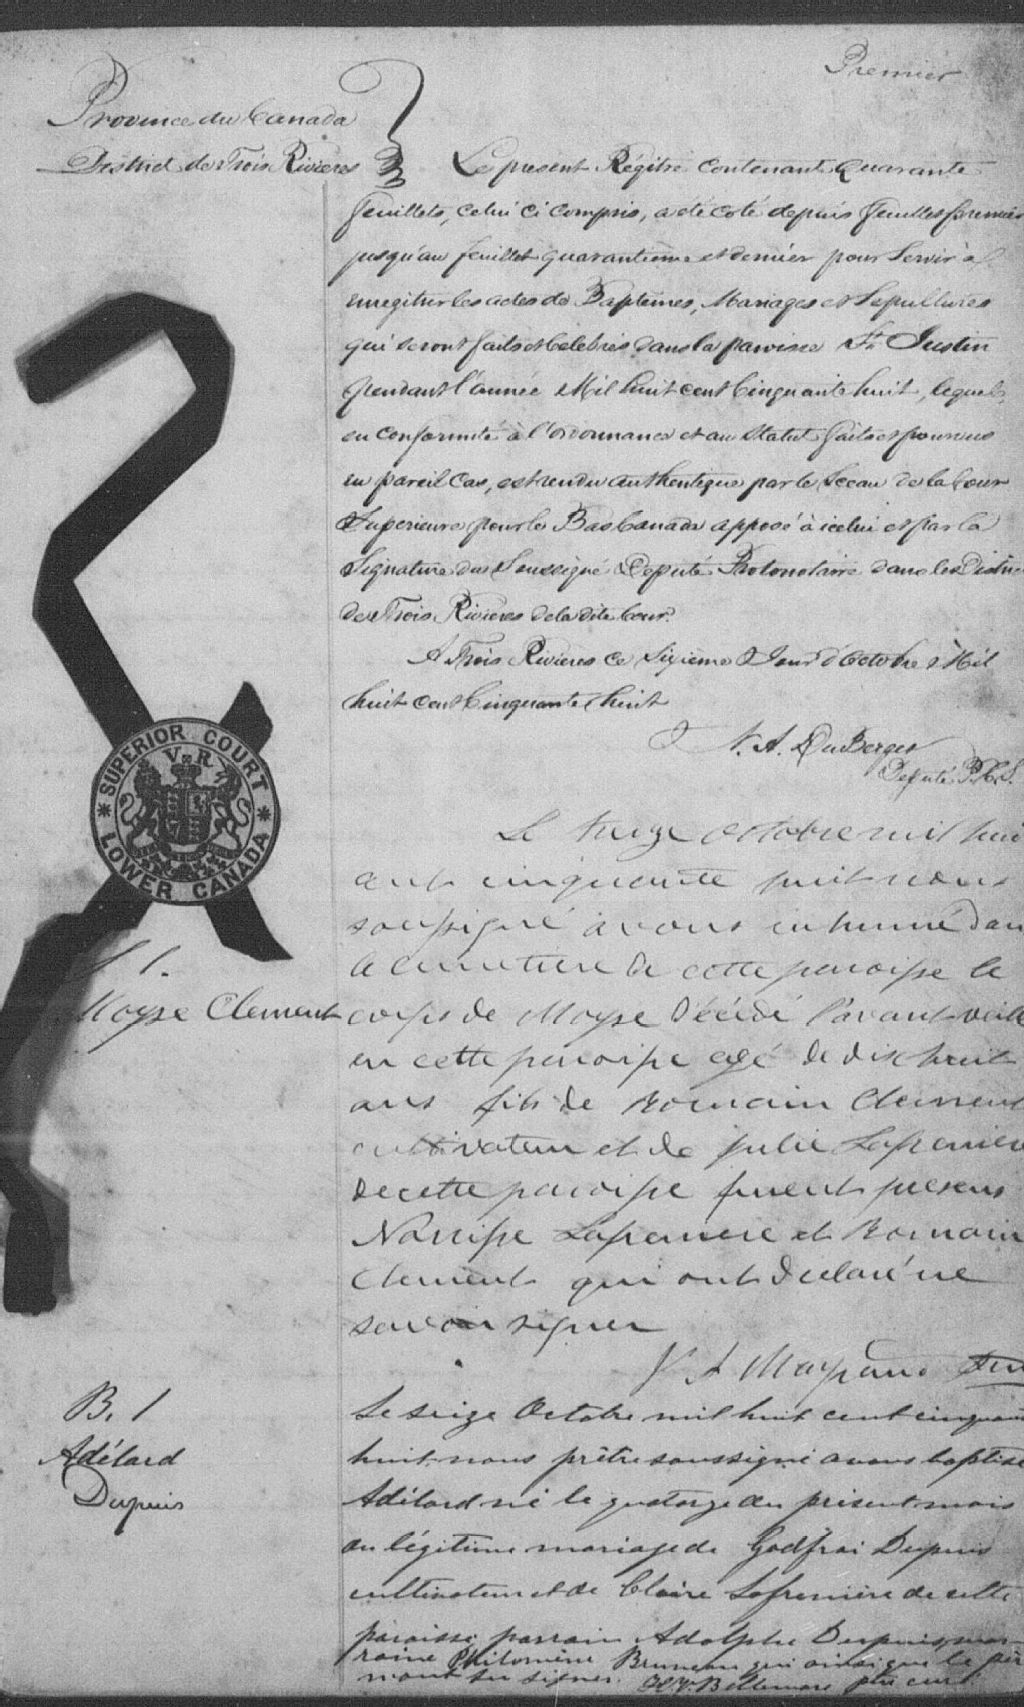 Premier
Province du Canada
District de Trois Rivieres
Le present Régitre contenant Quarante
feuillets, celui ci compris, a été coté depuis feuillet premier
jusqu'au feuillet quarantieme et dernier pour Servir à
enregitrer les actes de Baptemes, Mariages et Sepultures
qui seront faits et célébrés dans la paroisse St Justin
pendant l'année Mil huit cent Cinquante huit, lequel,
en conformité à l'ordonnance et au Statut faits et pourvus
en pareil Cas, est rendu authentique par le Sceau de la Cour
Superieure pour le Bas Canada apposé à icelui et par la
Signature du Soussigné Deputé Protonotaire dans le District
de Trois Rivieres de la dite Cour.
A Trois Rivieres ce Sixieme Jour d'Octobre Mil
huit cent Cinquante huit
N. A. DuBerger
Deputé P.C.S.
SUPERIOR COURT
V R
LOWER CANADA
Le treize octobre mil huit
cent cinquante huit nous
soussigné avons inhumé dans
le cimetiere de cette paroisse le
S 1.
Moyse Clement
corps de Moyse décédé l'avant veille
en cette paroisse agé de dix huit
ans fils de Romain Clement
cultivateur et de julie Lafreniere
de cette paroisse furent presens
Narcisse Lafreniere et Romain
Clement qui ont declaré ne
savoir signer
Mayrand
B. 1
Adélard
Dupuis
Le seize Octobre mil huit cent cinquante
huit nous prêtre soussigné avons baptisé
Adélard né le quatorze du présent mois
du légitime mariage de Godfroi Dupuis
cultivateur et de Claire Lafreniere de cette
paroisse; parrain Adolphe Dupuis, mar
raine Philomène Bruneau qui ainsi que le père
n'ont su signer. Bellemare ptre curé